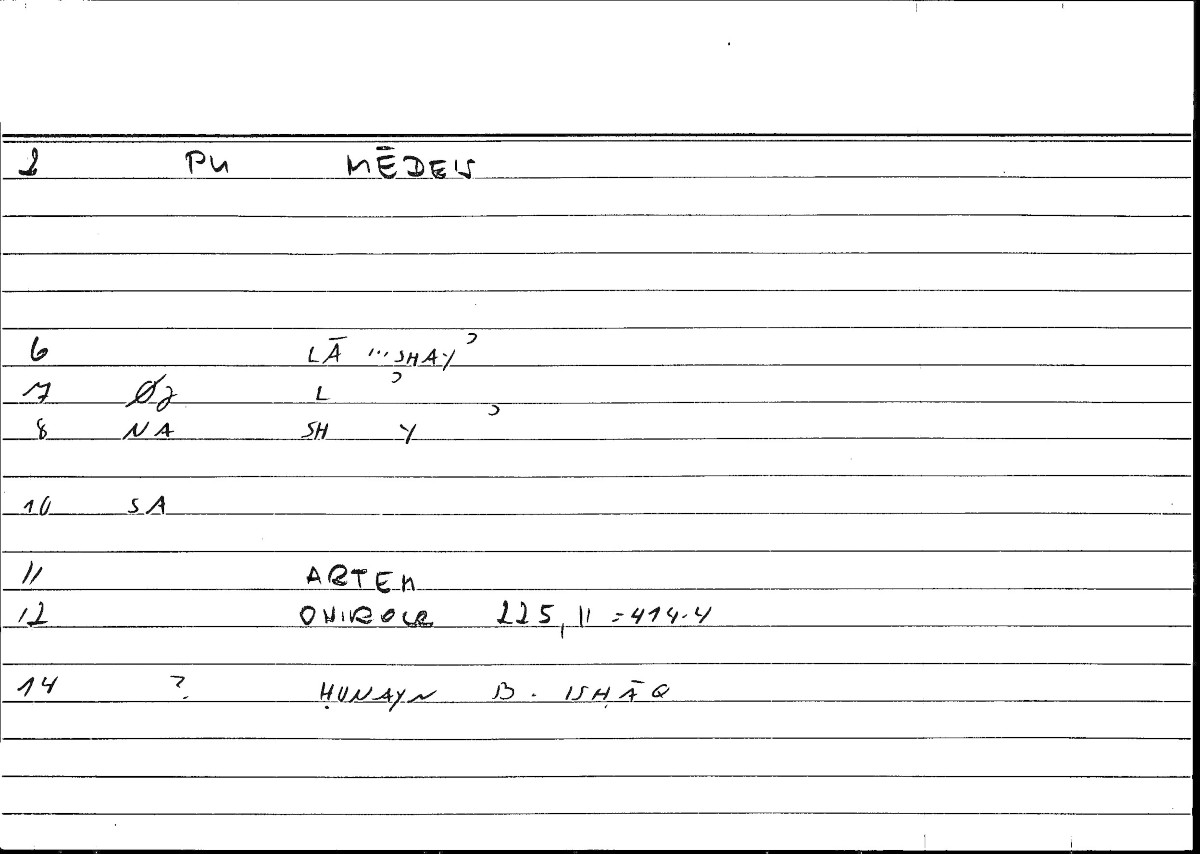 1 PN MĒDEIS
6 LĀ ...SHAYʾ
7 Ø2 Lʾ
8 NA SH Yʾ
10 SA
11 ARTEM
12 ONIROCR 225,11=414.4
14 ? ḤUNAYN B. ISḤĀQ